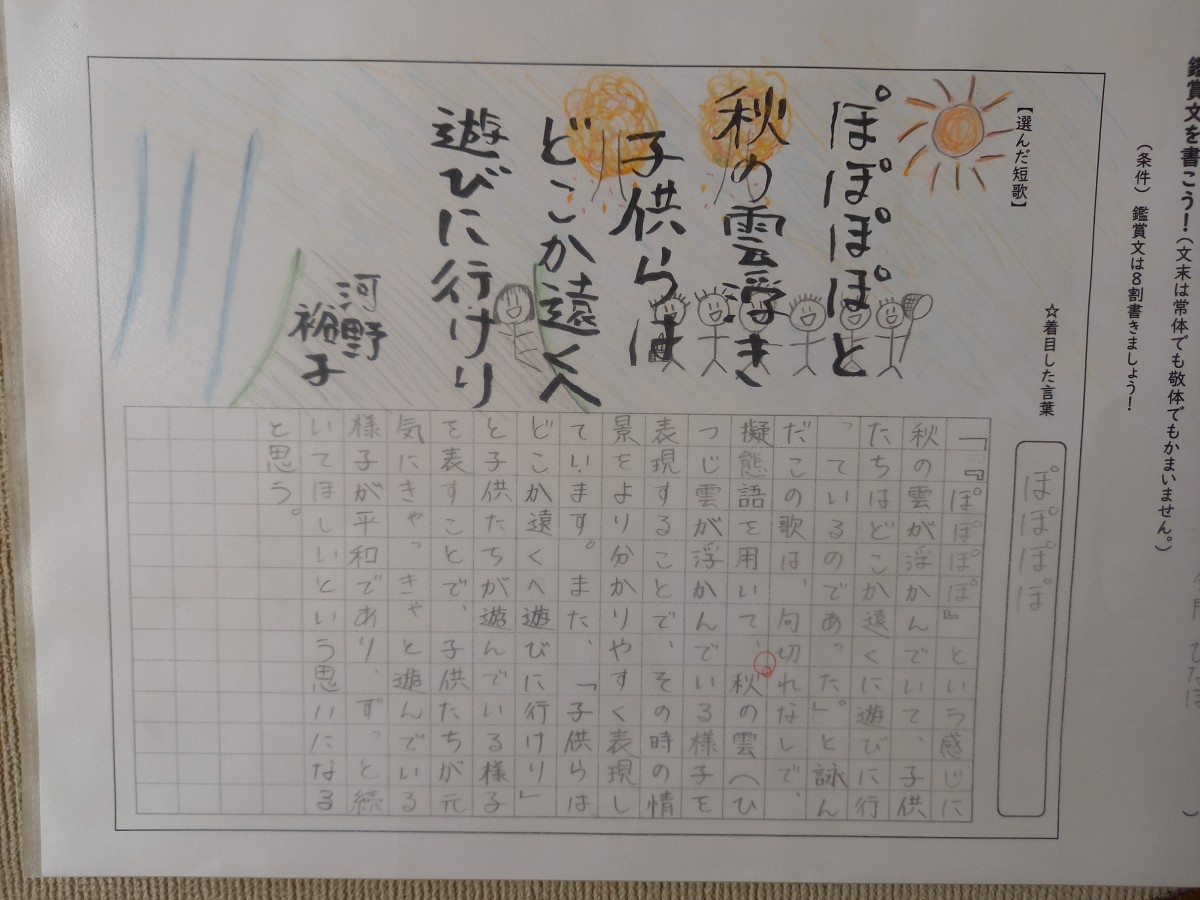 鑑賞文を書こう！（文末は常体でも敬体でもかまいません。）
（条件）鑑賞文は８割書きましょう！
【選んだ短歌】
ぽぽぽぽと
秋の雲浮き
子供らは
どこか遠くへ
遊びに行けり
河野
裕子
☆着目した言葉
ぽぽぽぽ
「『ぽぽぽぽ』という感じに
秋の雲が浮かんでいて、子供
たちはどこか遠くに遊びに行
っているのであった。」と詠ん
だこの歌は、句切れなしで、
擬態語を用いて、秋の雲（ひ
つじ雲が浮かんでいる様子を
表現することで、その時の情
景をより分かりやすく表現し
ています。また、「子供らは
どこか遠くへ遊びに行けり」
と子供たちが遊んでいる様子
を表すことで、子供たちが元
気にきゃっきゃと遊んでいる
様子が平和であり、ずっと続
いてほしいという思いになる
と思う。